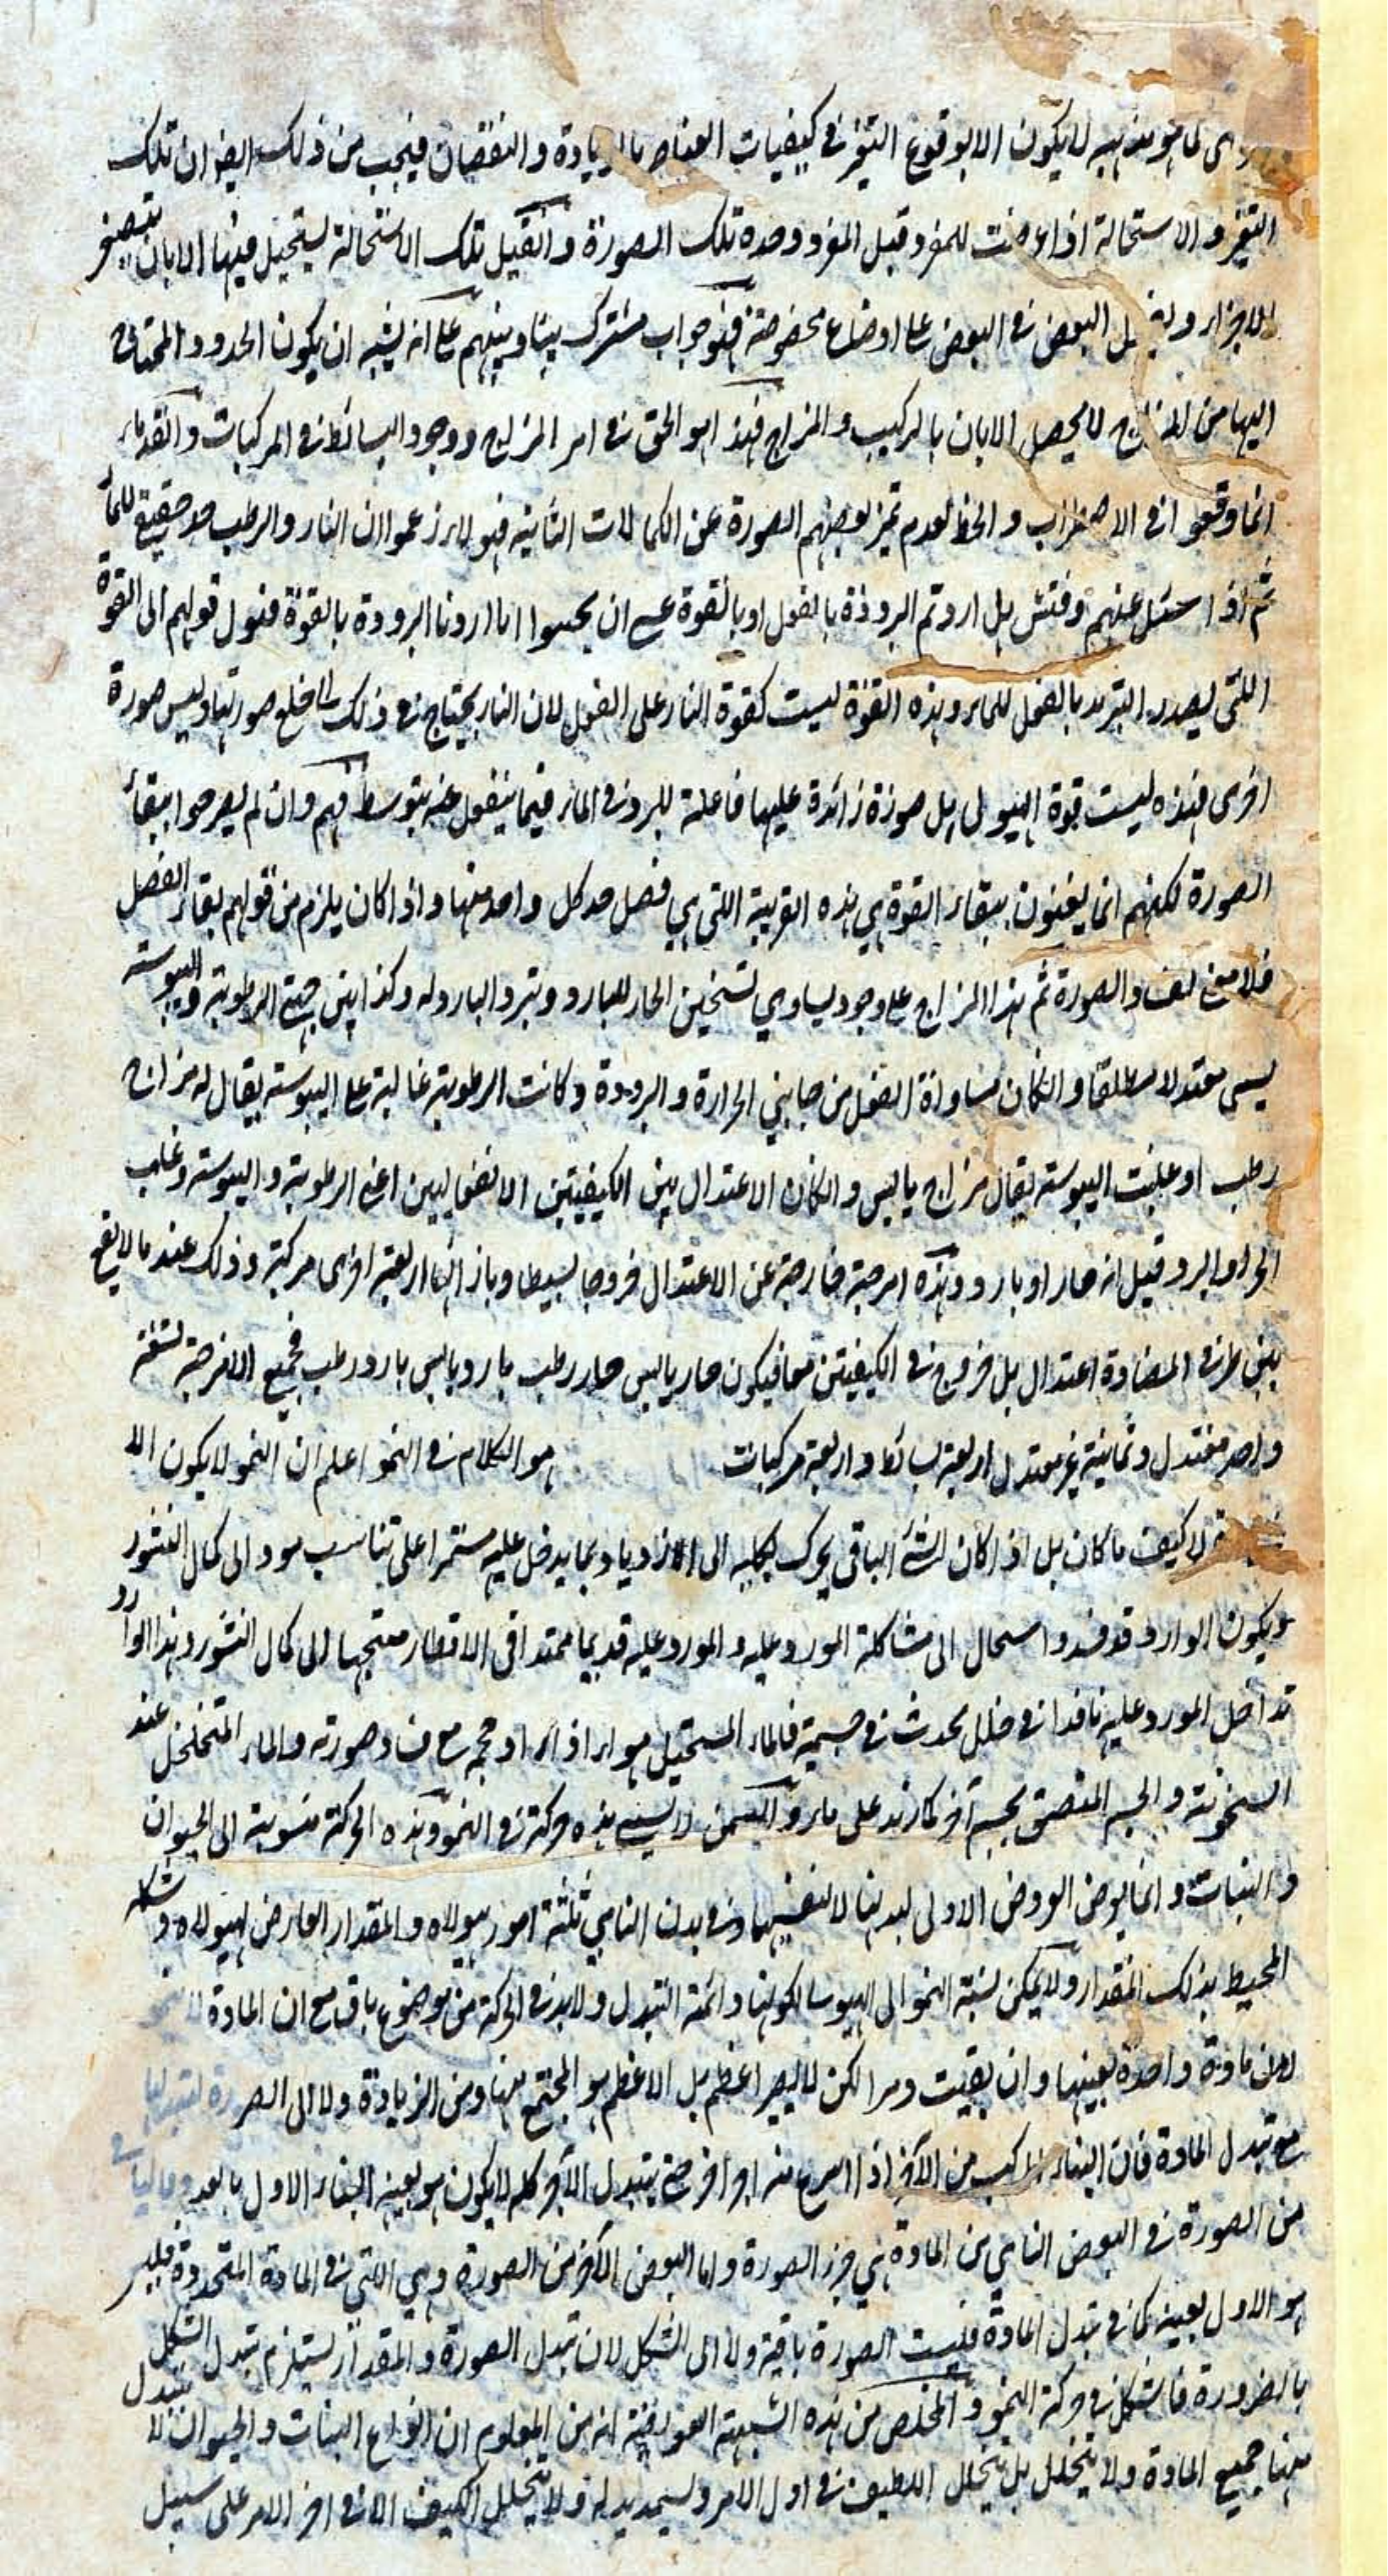 لما هو مذهبه لا يكون الا بوقوع التغير في كيفيات العناصر بالزيادة والنقصان فيجب من ذلك ايضا ان تلك
التغير والاستحالة اذا عرضت للمفرد قبل المفرد وحده تلك الصورة وان قيل تلك الاستحالة يستحيل فيها الا بان يتصغر
الاجزاء و البعض في البعض على اوضاع مخصوصة فهو جواب مشترك بيننا وبينهم على انه يشبه ان يكون الحدود المحتاج
اليها من المزاج لا يحصل الا بان بالتركيب والمزاج فهذا هو الحق في امر المزاج ووجود البسائط في المركبات والقدماء
انما وقعوا في الاضطراب والخطا لعدم تميز بعضهم الصورة عن الكمالات الثانية فهولاء زعموا ان النار والرطب حد حقيقي للماء
ثم اذا سئل عنهم وفتش هل اردتم البرودة بالفعل او بالقوة عسى ان يجيبوا انا اردنا البرودة بالقوة فنول قولهم الى القوة
اللتى يصدر التبريد بالفعل للماء وهذه القوة ليست كقوة النار على الفعل لان النار يحتاج في ذلك الى خلع صورتها ولبس صورة
اخرى فهذه ليست قوة الهيولى بل صورة زائدة عليها فاعلة للبرد في الماء فيما ينفعل عنه بتوسط فهم وان لم يصرحوا ببقاء
الصورة لكنهم انما يعنون ببقاء القوة هي هذه القريبة اللتى هي فصل حد كل واحد منها واذا كان يلزم من قولهم بقاء الفصل
فلا معنى لفساد الصورة ثم هذا المزاج على وجود يساوي تسخين الحار للبارد وتبريد البارد له وكذا بين جهتي الرطوبة واليبوسة
يسمى معتدلا مطلقا وان كان مساواة الفعل من جانبي الحرارة والبرودة وكانت الرطوبة غالبة على اليبوسة يقال له مزاج
رطب او غلبت اليبوسة يقال مزاج يابس وان كان الاعتدال بين الكيفيتين الانفعاليين اعني الرطوبة واليبوسة وغلب
الحر او البرد قيل انه حار او بارد وهذه امزجة خارجة عن الاعتدال خروجا بسيطا وبازائها اربعة اخرى مركبة وذلك عند ما لا يقع
بين طرفي المضادة اعتدال بل خروج في الكيفيتين معا فيكون حار يابس حار رطب بارد يابس بارد رطب فجميع الامزجة تسعة
واحد معتدل وثمانية غير معتدل اربعة بسائط واربعة مركبات هو الكلام في النمو اعلم ان النمو لا يكون الا
لا كيف ما كان بل اذا كان الشئ الباقي يحرك بكليه الى الازدياد بما يدخل عليه مستمرا على تناسب مود الى كمال النشور
ويكون الوارد قد فسد واستحال الى مشاكلة المورد عليه والمورد عليه قد يما ممتدا في الاقطار متجها الى كمال النشور وهذا الوارد
تداخل المورد عليه نافذا في خلل يحدث في جسمية فالماء المستحيل هواء اذا ازداد حجمه مع فساد صورته والماء المتخلخل عند
السخونة والجسم الملتصق بجسم آخر كازيد على ماء والسمن لا يسمى هذه حركة في النمو وهذه الحركة منسوبة الى الحيوان
والنبات وانما يعرض العروض الاولى لبدنها لا لنفسها وفي بدن النامي ثلثة امور هيولاه والمقدار العارض لهيولاه وشكله
المحيط بذلك المقدار ولا يمكن نسبة النمو الى الهيولى لكونها دائمة التبدل ولابد في الحركة من موضوع باق مع ان المادة لا تنمو
لان مادة واحدة بعينها وان بقيت دهرا لكن لا يصير اعظم بل الاعظم هو المجتمع منها ومن الزيادة ولا الى الصورة لتبدلها
مع تبدل المادة فان البناء المركب من الآجر اذا انتزع منه اجر اجر حتى يتبدل الآجر كله لا يكون هو بعينه البناء الاول بالعدد وما ليا في
من الصورة في البعض النامي من المادة هي جزء الصورة واما البعض الآخر من الصورة وهي اللتى في المادة المتجددة فليس
هو الاول بعينه كما في تبدل المادة فليست الصورة باقية ولا الى الشكل لان تبدل الصورة والمقدار يستلزم تبدل الشكل
بالضرورة فاشكل في حركة النمو والمخلص من هذه الشبهة العويصة انه من المعلوم ان انواع النبات والحيوان لا تتبدل
منها جميع المادة ولا يتحلل بل يتحلل اللطيف في اول الامر ويستمد بدله ولا يتحلل الكثيف الا في اخر الامر على سبيل